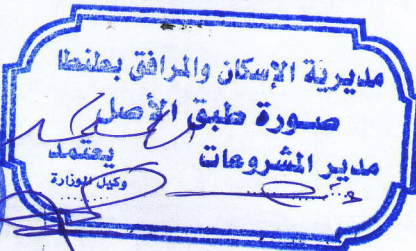 مديرية الإسكان والمرافق بطنطا
صورة طبق الأصل
مدير المشروعات يعتمد
وكيل الوزارة